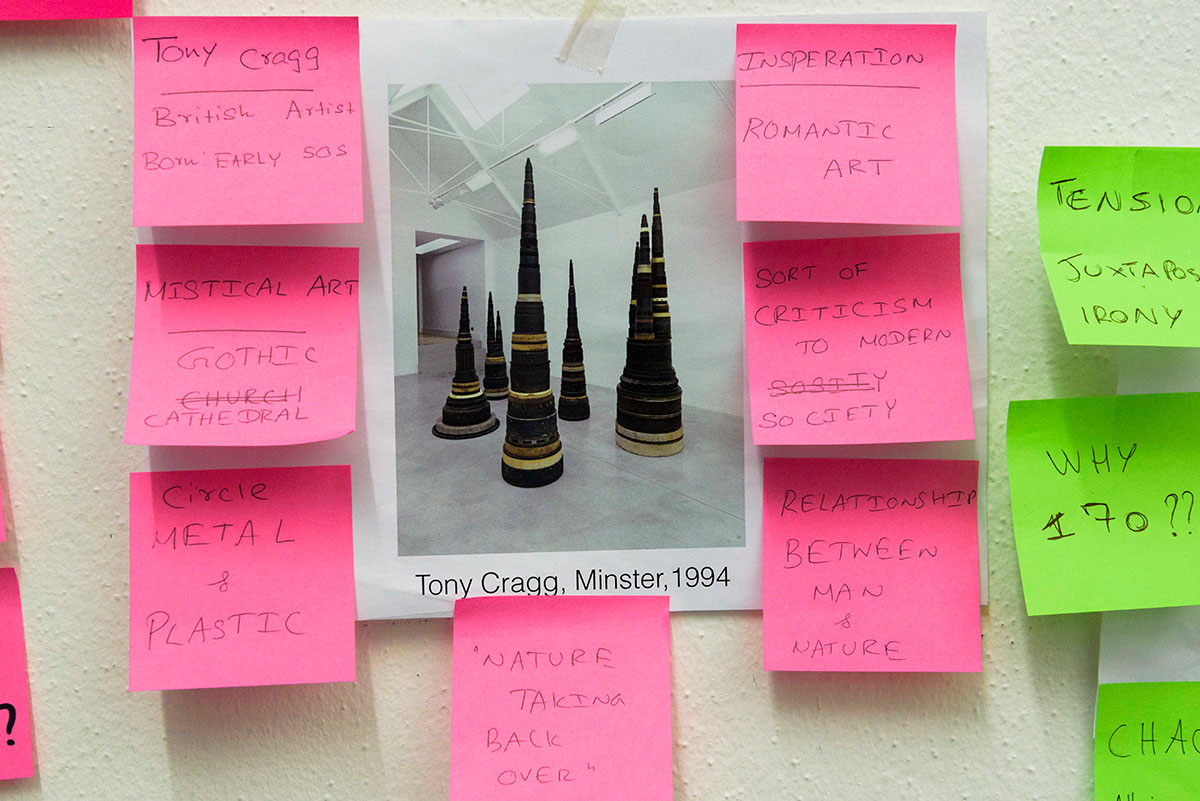 Tony Cragg
British Artist
Born: EARLY 50S
MISTICAL ART
GOTHIC
CHURCH
CATHEDRAL
Circle
METAL
&
PLASTIC
Tony Cragg, Minster, 1994
"NATURE
TAKING
BACK
OVER"
INSPERATION
ROMANTIC
ART
SORT OF
CRITICISM
TO MODERN
SOCIETY
RELATIONSHIP
BETWEEN
MAN
&
NATURE
TENSION
JUXTAPOS
IRONY
WHY
170??
CHAO
?